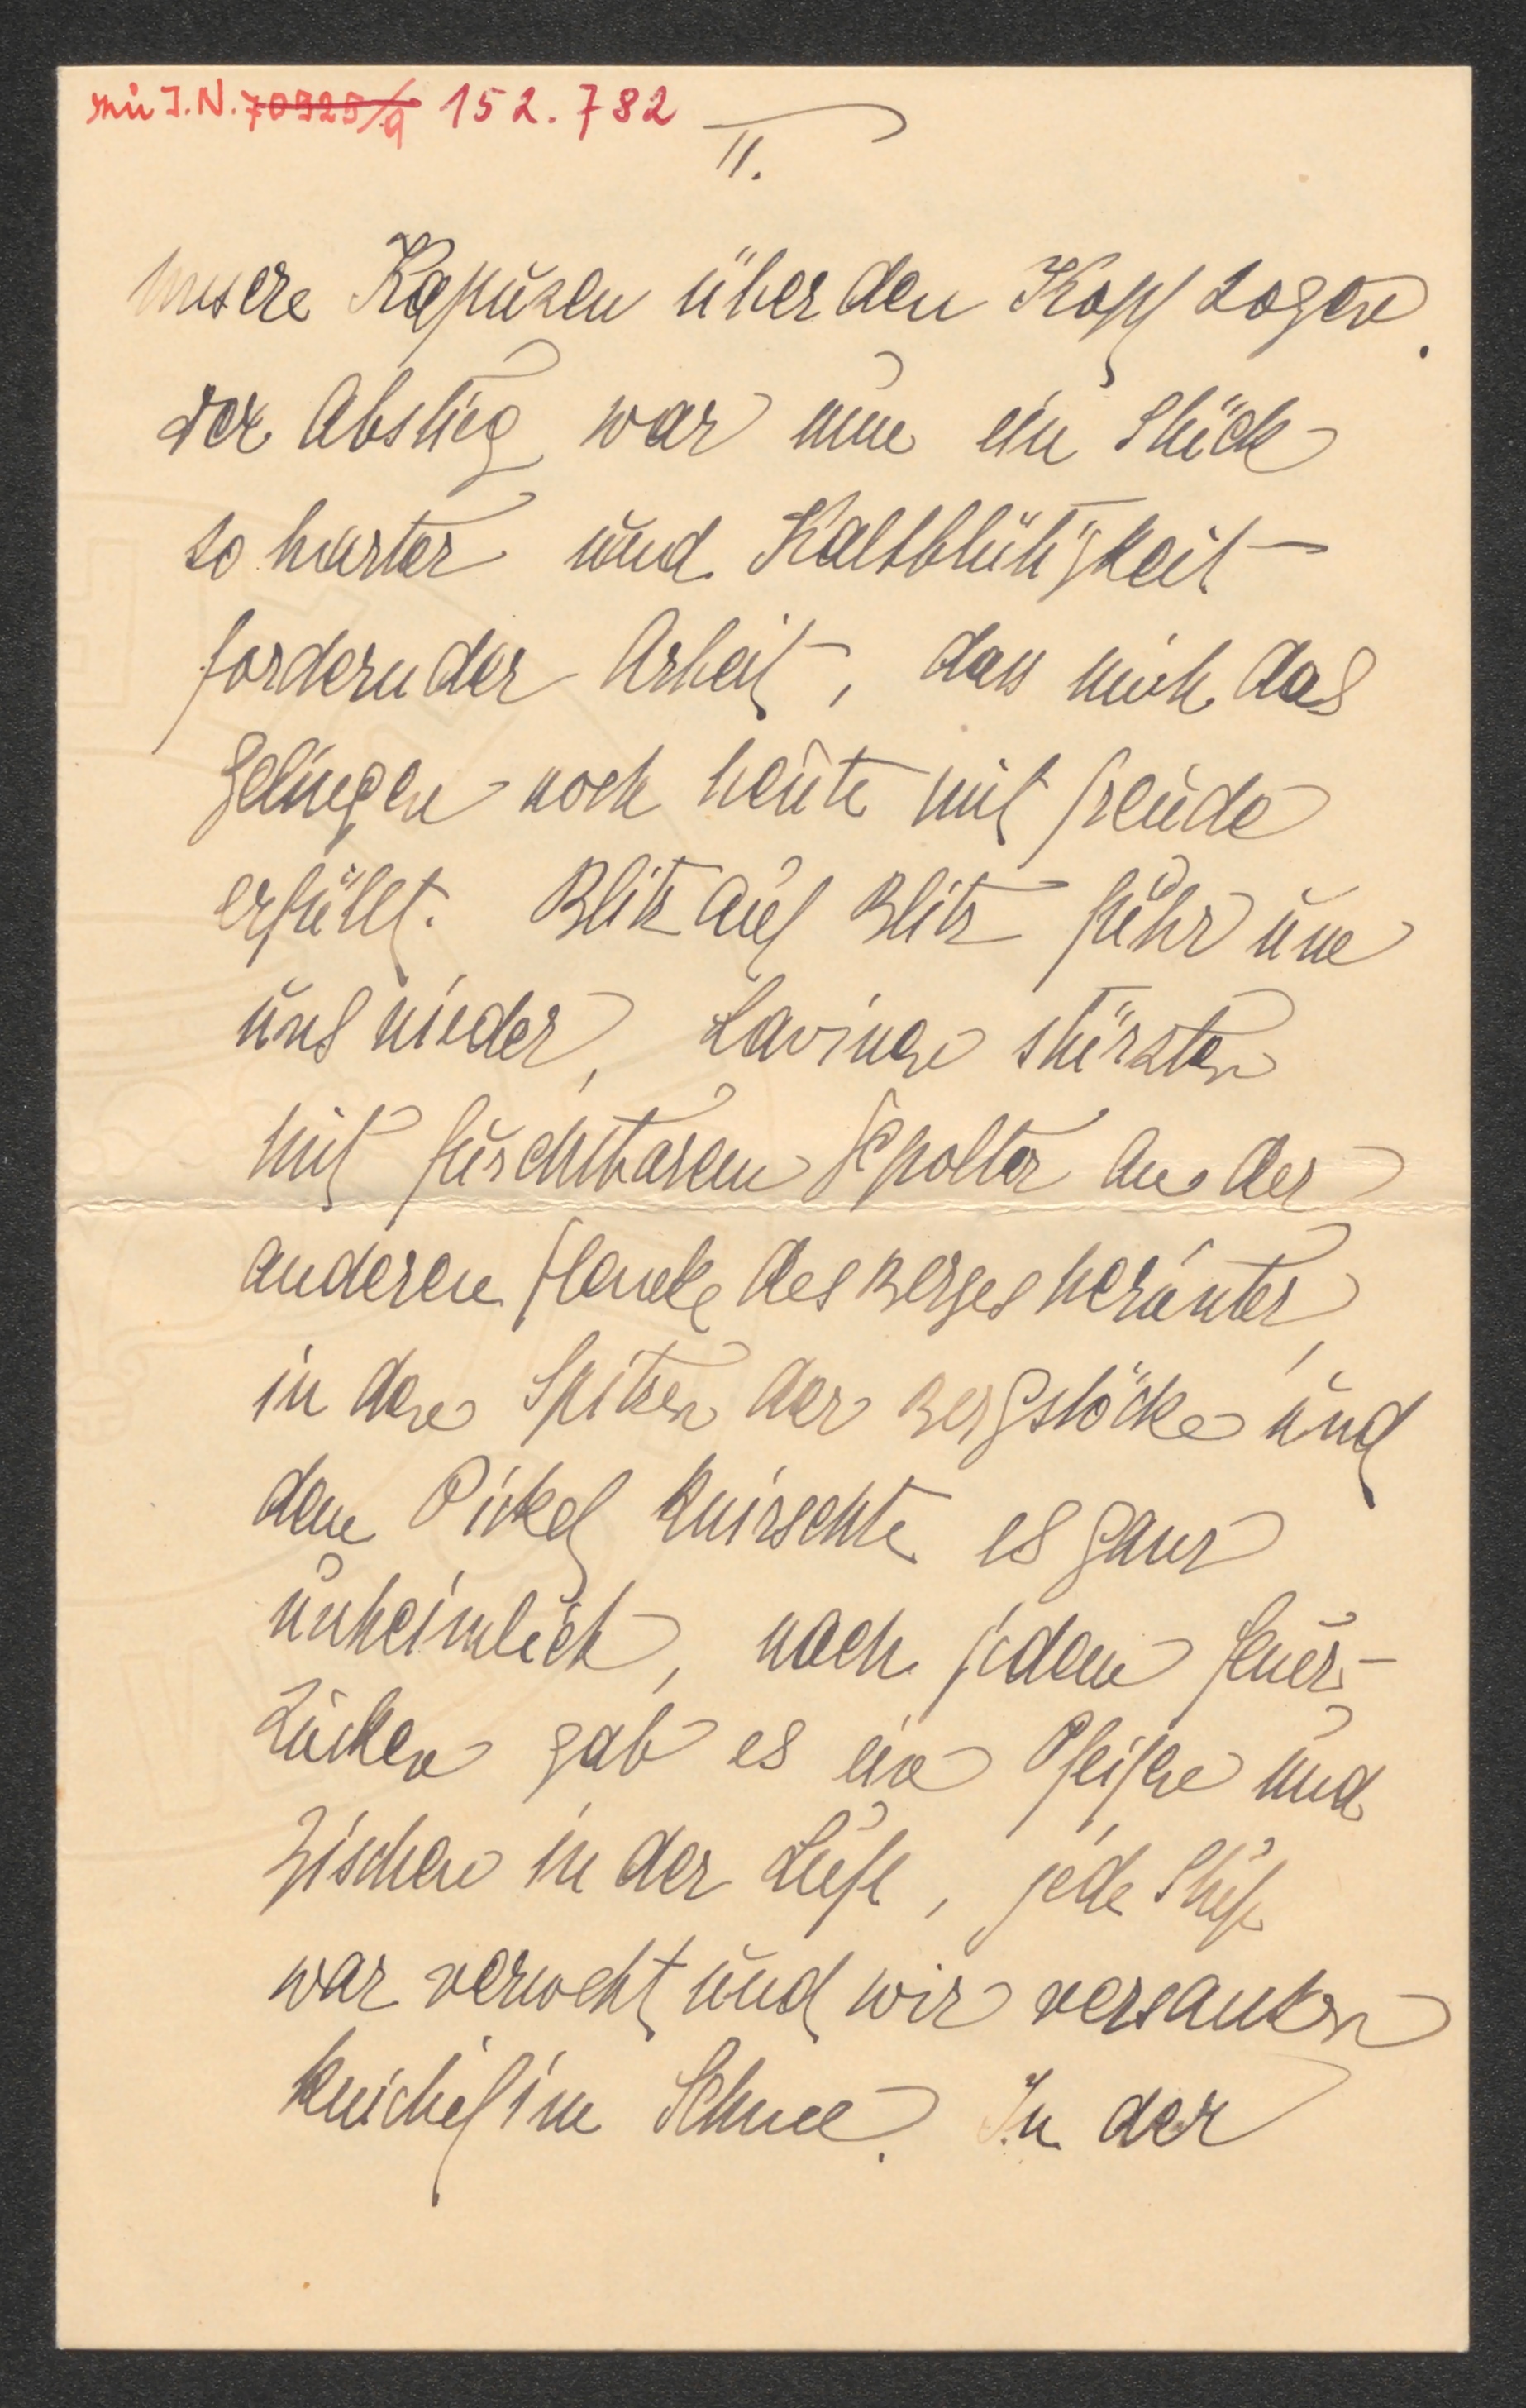 zu I.N. 70525/9 152.782
II.
unsere Kapuzen über den Kopf zogen.
Der Abstieg war nun ein Stück
so harter und Kaltblütigkeit
fordernder Arbeit, dass mich das
Gelingen noch heute mit Freude
erfüllt. Blitz auf Blitz fuhr um
uns nieder, Lavinen stürzten
mit furchtbarem Gepolter an der
anderen Flanke des Berges herunter,
in den Spitzen der Bergstöcke und
dem Pickel knirschte es ganz
unheimlich, nach jedem Feuer-
zucken gab es ein Pfeifen und
Zischen in der Luft, jede Stufe
war verweht und wir versanken
knietief im Schnee. In der